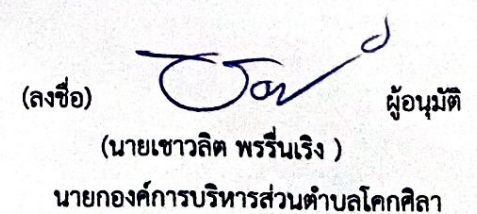 (ลงชื่อ) ผู้อนุมัติ
(นายเชาวลิต พรรื่นเริง )
นายกองค์การบริหารส่วนตำบลโคกศิลา